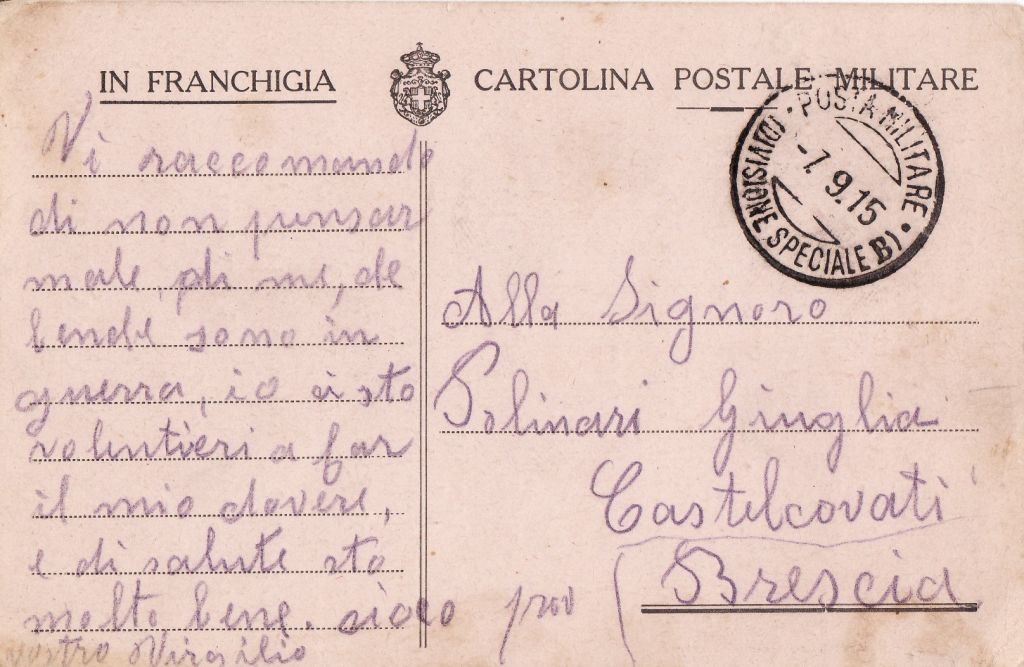 IN FRANCHIGIA
CARTOLINA POSTALE MILITARE
POSTA MILITARE
(DIVISIONE SPECIALE B)
-7.9.15
Vi raccomando
di non pensar
male, di me, se
benche sono in
guerra, io ci sto
volentieri a far
il mio dovere,
e di salute sto
molto bene.
vostro Virgilio
Alla Signora
Polinari Giuglia
Castelcovati
prov Brescia